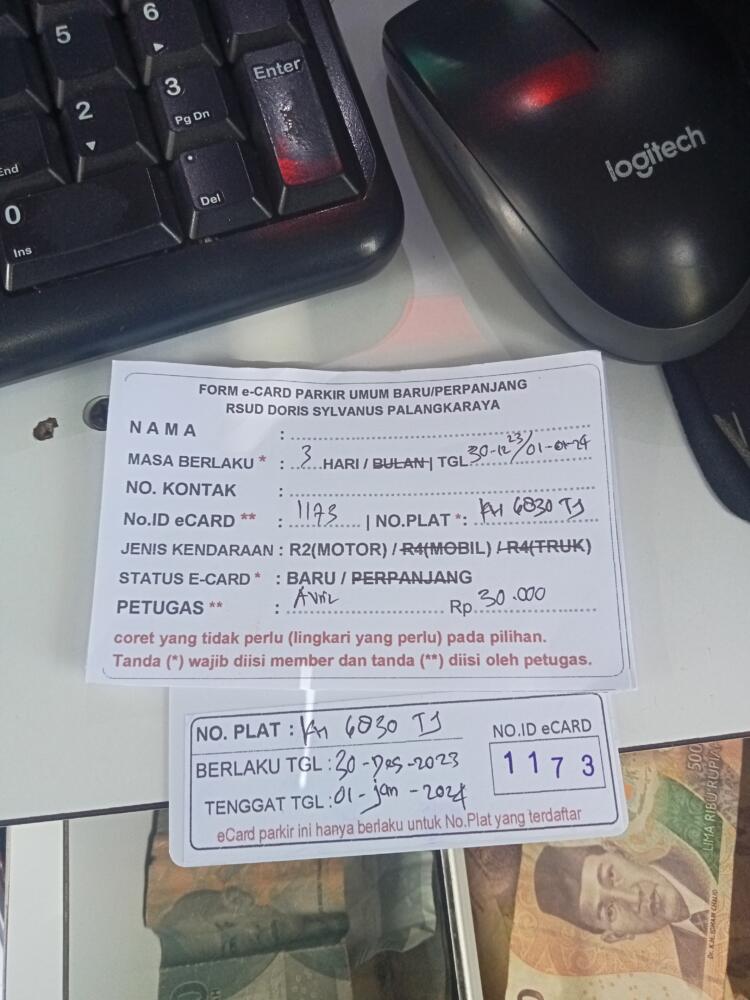 5
6
Enter
2
3
Pg Dn
End
0
Ins
.
Del
logitech
FORM e-CARD PARKIR UMUM BARU/PERPANJANG
RSUD DORIS SYLVANUS PALANGKARAYA
NAMA :
MASA BERLAKU * : 3 HARI / BULAN | TGL 30-12-23/01-01-24
NO. KONTAK :
No.ID eCARD ** : 1173 | NO.PLAT *: KH 6830 TJ
JENIS KENDARAAN : R2(MOTOR) / R4(MOBIL) / R4(TRUK)
STATUS E-CARD * : BARU / PERPANJANG
PETUGAS ** : Avril Rp. 30.000
coret yang tidak perlu (lingkari yang perlu) pada pilihan.
Tanda (*) wajib diisi member dan tanda (**) diisi oleh petugas.
NO. PLAT : KH 6830 TJ
NO.ID eCARD
1173
BERLAKU TGL : 30-Des-2023
TENGGAT TGL : 01-jan-2024
eCard parkir ini hanya berlaku untuk No.Plat yang terdaftar
500
LIMA RIBU RUPIAH
Dr. K.H. IDHAM CHALID